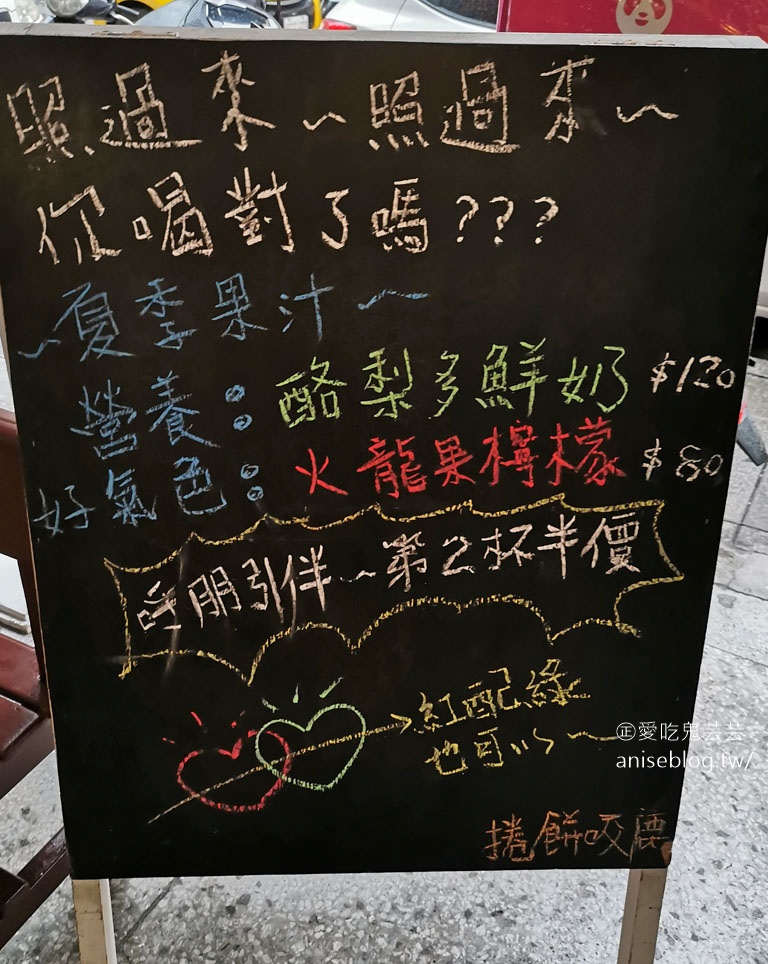 照過來～照過來～
你喝對了嗎???
~夏季果汁~
營養: 酪梨多鮮奶 $120
好氣色: 火龍果檸檬 $80
呼朋引伴~第2杯半價
紅配綠
也可以~
捲餅咬
㊣愛吃鬼芸芸
aniseblog.tw/